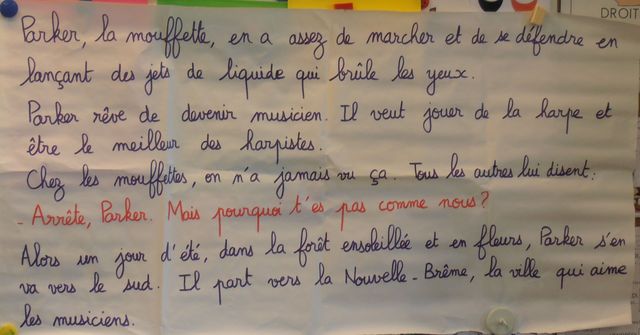 DROIT
Parker, la mouffette, en a assez de marcher et de se défendre en
lançant des jets de liquide qui brûle les yeux.
Parker rêve de devenir musicien. Il veut jouer de la harpe et
être le meilleur des harpistes.
Chez les mouffettes, on n'a jamais vu ça. Tous les autres lui disent :
- Arrête, Parker. Mais pourquoi t'es pas comme nous ?
Alors un jour d'été, dans la forêt ensoleillée et en fleurs, Parker s'en
va vers le sud. Il part vers la Nouvelle-Brême, la ville qui aime
les musiciens.